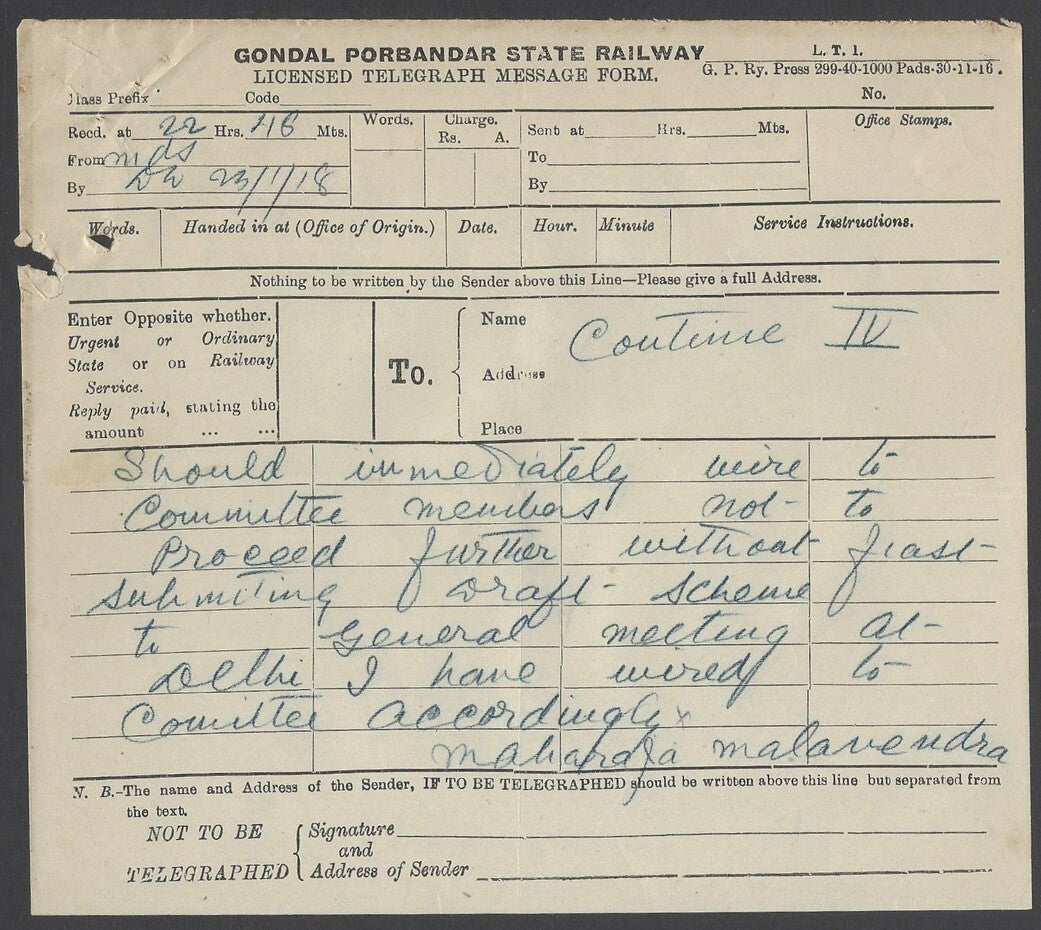 GONDAL PORBANDAR STATE RAILWAY
LICENSED TELEGRAPH MESSAGE FORM.
L. T. 1.
G. P. Ry. Press 299-40-1000 Pads-30-11-16.
Class Prefix Code No.
Recd. at 22 Hrs. 46 Mts.
From mds
By 23/1/18
Words.
Charge.
Rs. A.
Sent at Hrs. Mts.
To
By
Office Stamps.
Words. Handed in at (Office of Origin.) Date. Hour. Minute Service Instructions.
Nothing to be written by the Sender above this Line—Please give a full Address.
Enter Opposite whether.
Urgent or Ordinary
State or on Railway
Service.
Reply paid, stating the
amount ... ...
To.
Name
Address
Place
Continue IV
Should immediately wire to
Committee members not to
Proceed further without first
submitting draft scheme
to General meeting at
Delhi I have wired to
Comittee accordingly x
Maharaja malavendra
N. B.-The name and Address of the Sender, IF TO BE TELEGRAPHED should be written above this line but separated from
the text.
NOT TO BE
TELEGRAPHED
Signature
and
Address of Sender